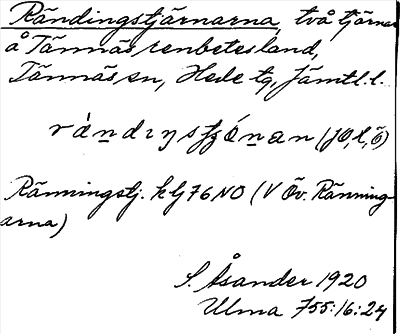 Rändingstjärnarna, två tjärnar
å Tännäs renbetesland,
Tännäs sn, Hede tg, Jämtl. l.
Ränningstj. kbj 76 NO (V Öv. Ränning-
arna)
S. Åsander 1920
Ulma 755:16:24